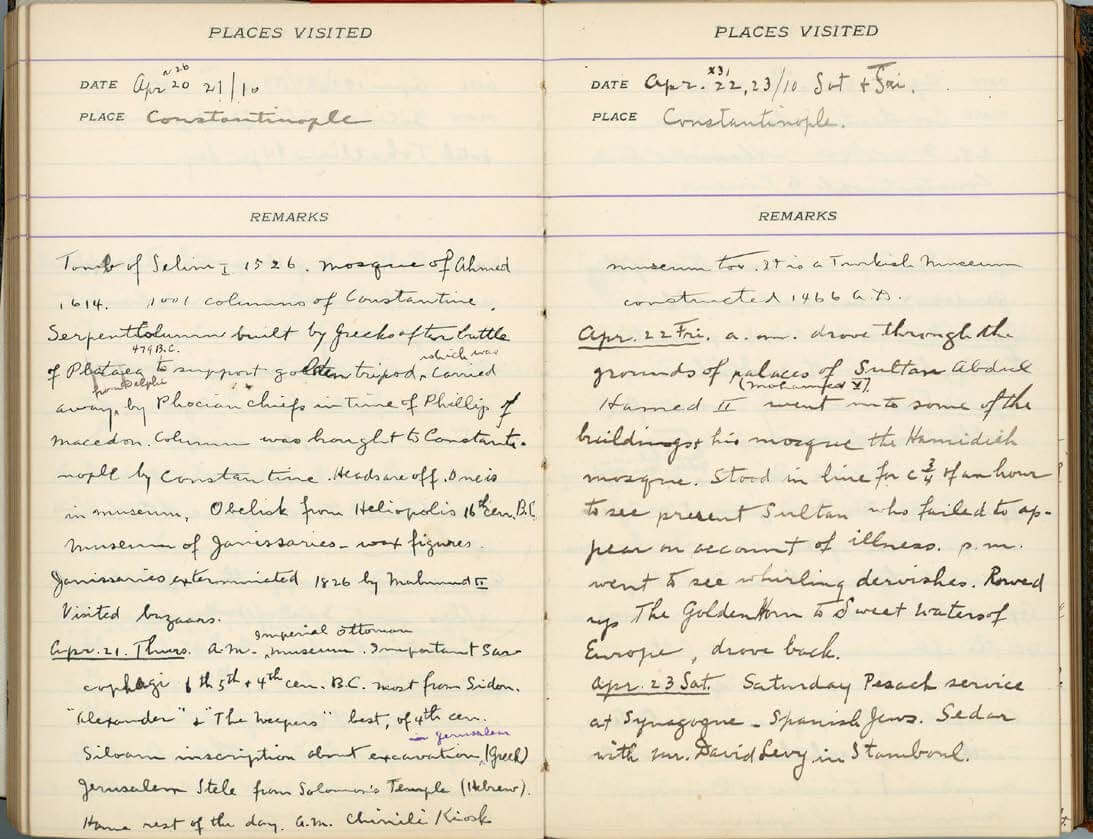 PLACES VISITED
DATE Apr 20 21/10
PLACE Constantinople
REMARKS
Tomb of Selim I 1526. Mosque of Ahmed
1614. 1001 columns of Constantine
Serpent Column built by Greeks after battle
479 B.C. which was
of Plataea to support golden tripod, carried
from Delphi
away, by Phocian chiefs in time of Phillip of
Macedon. Column was brought to Constanti-
nople by Constantine. Heads are off. One is
in museum, Obelisk from Heliopolis 16th cen. B.C.
Museum of Janissaries - wax figures
Janissaries exterminated 1826 by Mahmud II
Visited bazaars.
Imperial Ottoman
Apr. 21. Thurs. A.M. museum. Important Sar-
cophagi 6th 5th + 4th cen. B.C. most from Sidon.
"Alexander" + "The Weepers" best, of 4th cen.
in Jerusalem
Siloam inscription about excavation, (Greek)
Jerusalem Stele from Solomon's Temple (Hebrew).
Home rest of the day. A.M. Chinili Kiosk
PLACES VISITED
DATE Apr. 22, 23/10 Sat + Fri.
PLACE Constantinople.
REMARKS
museum too. It is a Turkish Museum
constructed 1466 A.D.
Apr. 22 Fri. a.m. drove through the
grounds of palaces of Sultan Abdul
(Mohammed V)
Hamed II went into some of the
buildings + his mosque the Hamidieh
mosque. Stood in line for c 3/4 of an hour
to see present Sultan who failed to ap-
pear on account of illness. p.m.
went to see whirling dervishes. Rowed
up The Golden Horn to Sweet Waters of
Europe, drove back.
Apr. 23 Sat. Saturday Pesach service
at Synagogue - Spanish Jews. Sedar
with Mr. David Levy in Stamboul.